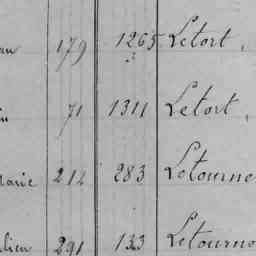 179 1265 Letort,
71 1311 Letort,
214 283 Letourne
291 133 Letourno